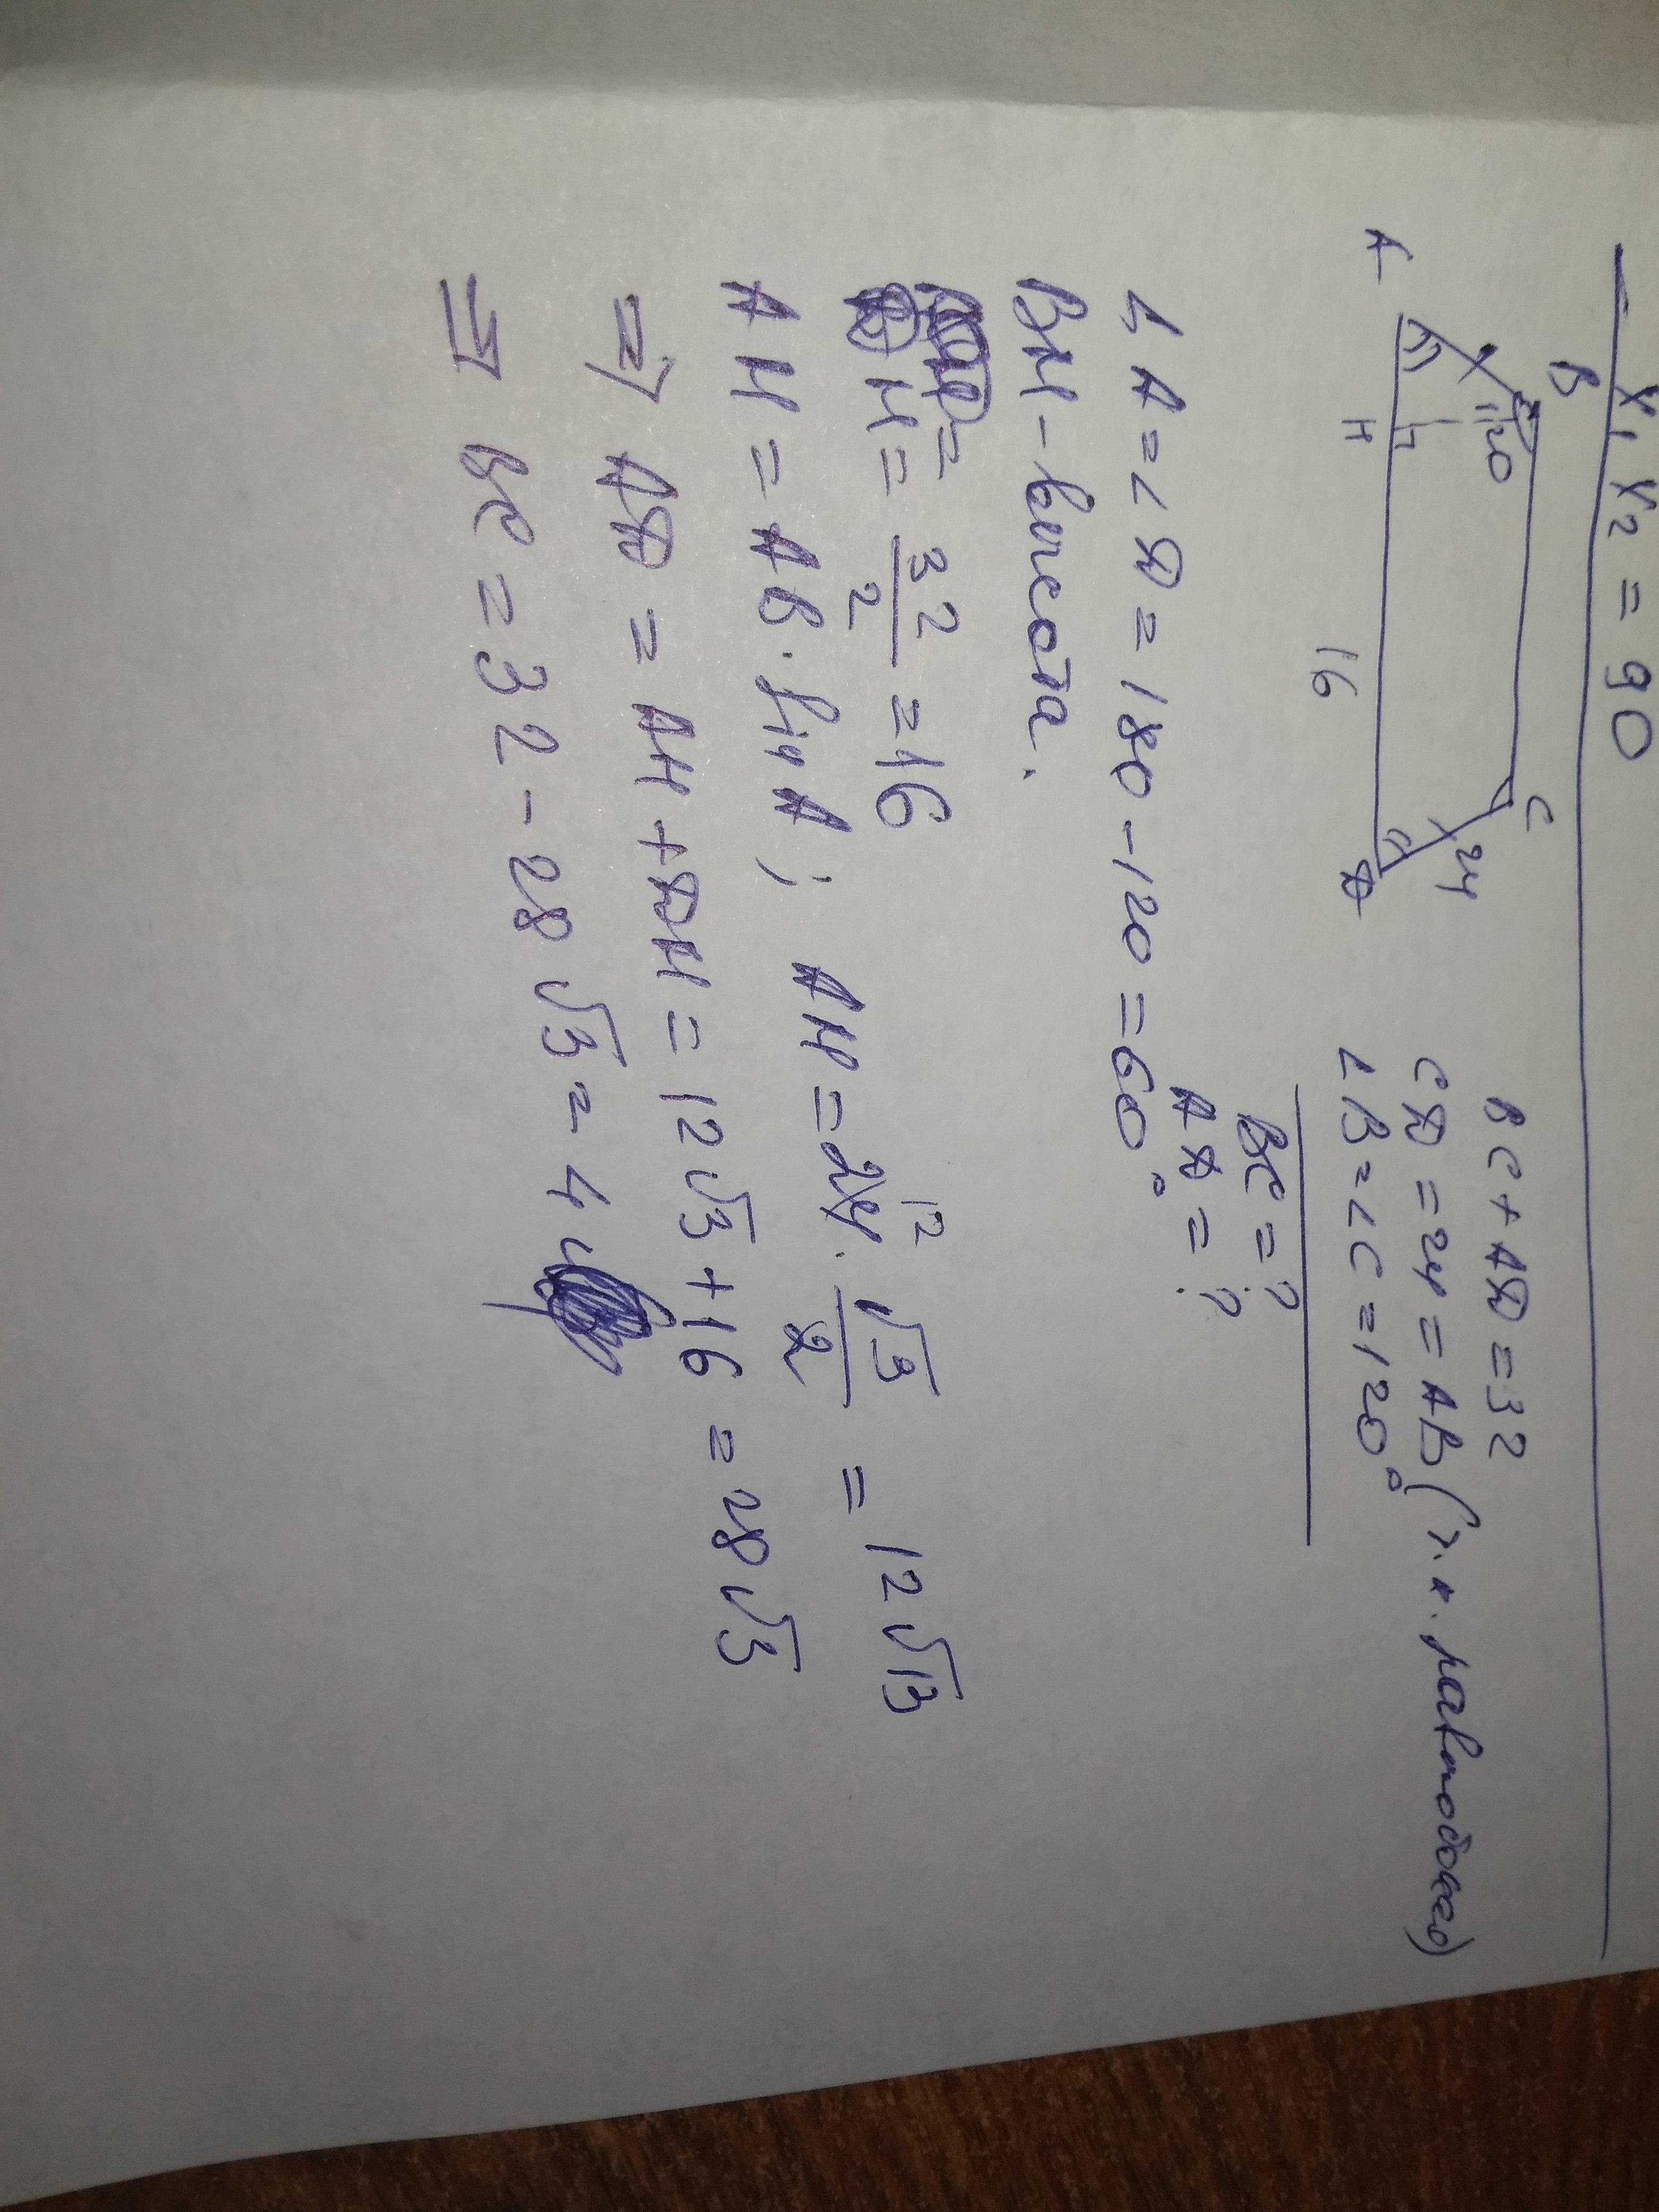 x₁ x₂ = 90
B
C
120
24
A
H
16
D
BC + AD = 32
CD = 24 = AB (т.к. равнобокая)
∠B = ∠C = 120°
BC = ?
AD = ?
∠A = ∠D = 180 - 120 = 60°
BH - высота.
H = 32/2 = 16
AH = AB · sin A ; AH = 24 · √3/2 = 12√13
12
=> AD = AH + DH = 12√3 + 16 = 28√3
=> BC = 32 - 28√3 = 4